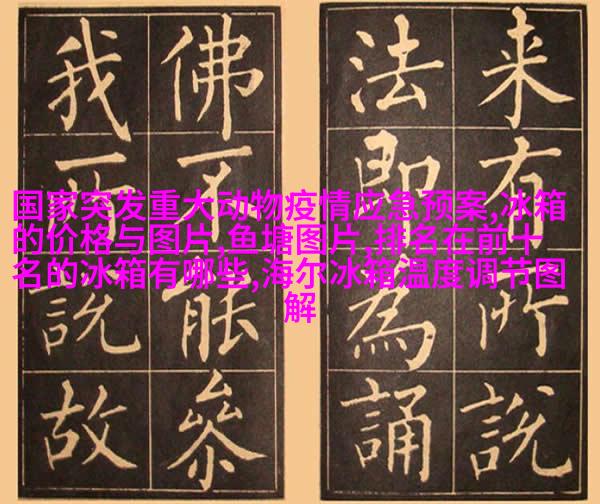 来有所說
法即為誦
佛不能參
我所說故
国家突发重大动物疫情应急预案,冰箱
的价格与图片,鱼塘图片,排名在前十
名的冰箱有哪些,海尔冰箱温度调节图
解